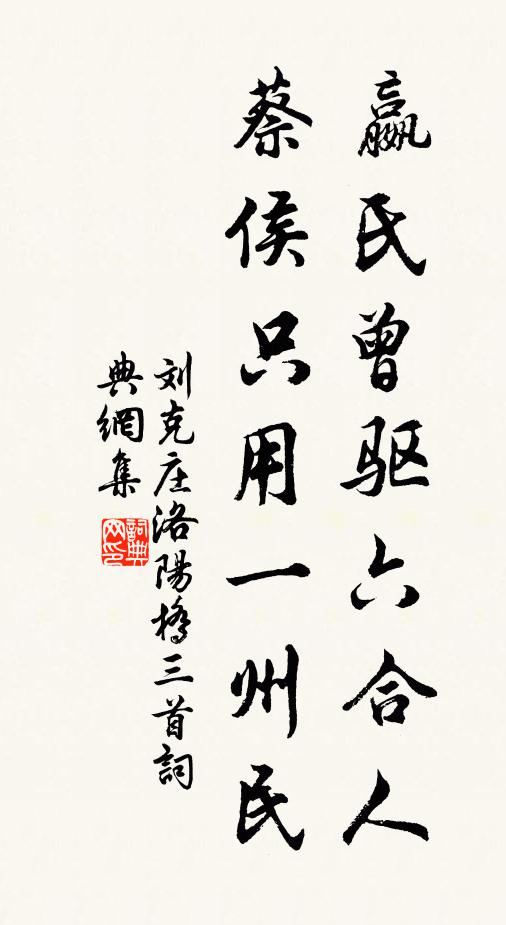 嬴氏曾驱六合人
蔡侯只用一州民
刘克庄洛陽橋三首詞
典網集
詞典
网印